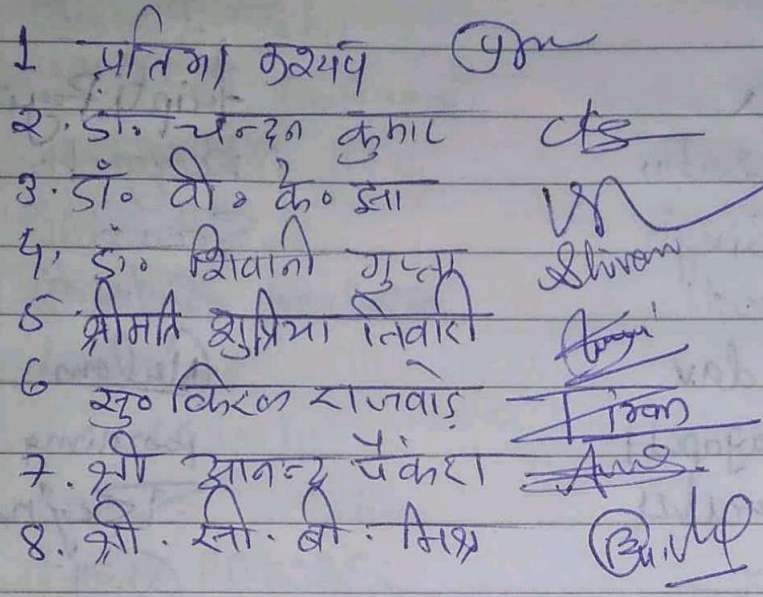 1 प्रतिमा कश्यप
2. डॉ. चन्दन कुमार
3. डॉ. वी. के. झा
4. डॉ. शिवानी गुप्ता Shivani
5 श्रीमति शुप्रिया तिवारी
6 सु० किरन राजवाड़े Kiran
7. श्री आनन्द पैंकरा
8. श्री. सी. बी. मिश्र